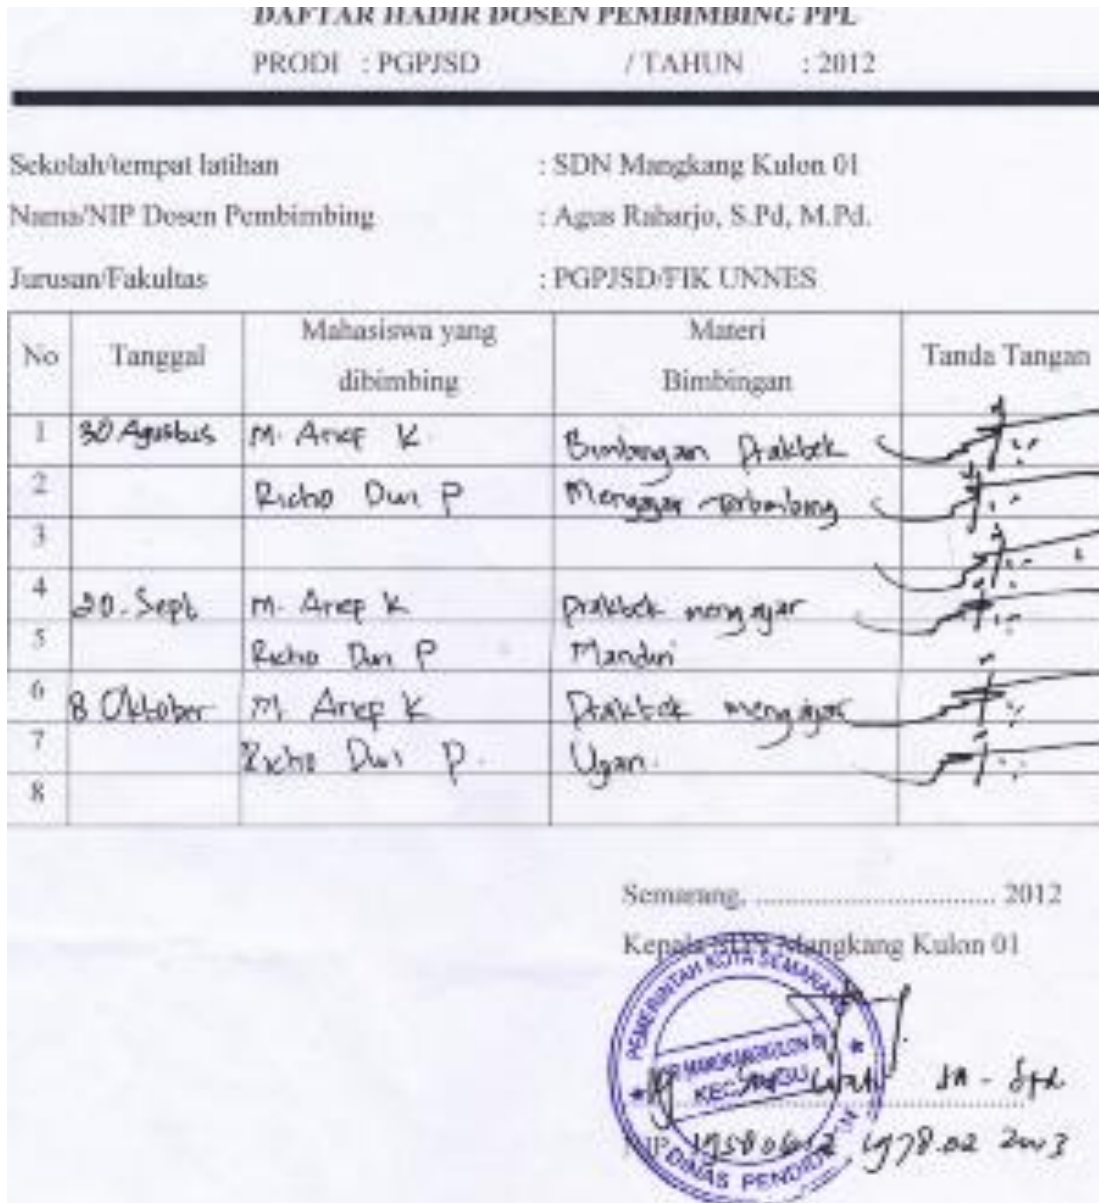 DAFTAR HADIR DOSEN PEMBIMBING PPL
PRODI : PGPJSD / TAHUN : 2012
Sekolah/tempat latihan : SDN Mangkang Kulon 01
Nama/NIP Dosen Pembimbing : Agus Raharjo, S.Pd, M.Pd.
Jurusan/Fakultas : PGPJSD/FIK UNNES
No Tanggal Mahasiswa yang dibimbing Materi Bimbingan Tanda Tangan
1 30 Agustus M. Arief K. Bimbingan Praktek
2 Richo Dwi P Mengajar Terbimbing
3
4 20. Sept M. Arief K Praktek mengajar
5 Richo Dwi P Mandiri
6 8 Oktober M. Arief K Praktek mengajar
7 Richo Dwi P. Ujian.
8
Semarang, ................................ 2012
Kepala SDN Mangkang Kulon 01
PEMERINTAH KOTA SEMARANG
KEC. TUGU
DINAS PENDIDIKAN
NIP. 19580612 1978.02 2003